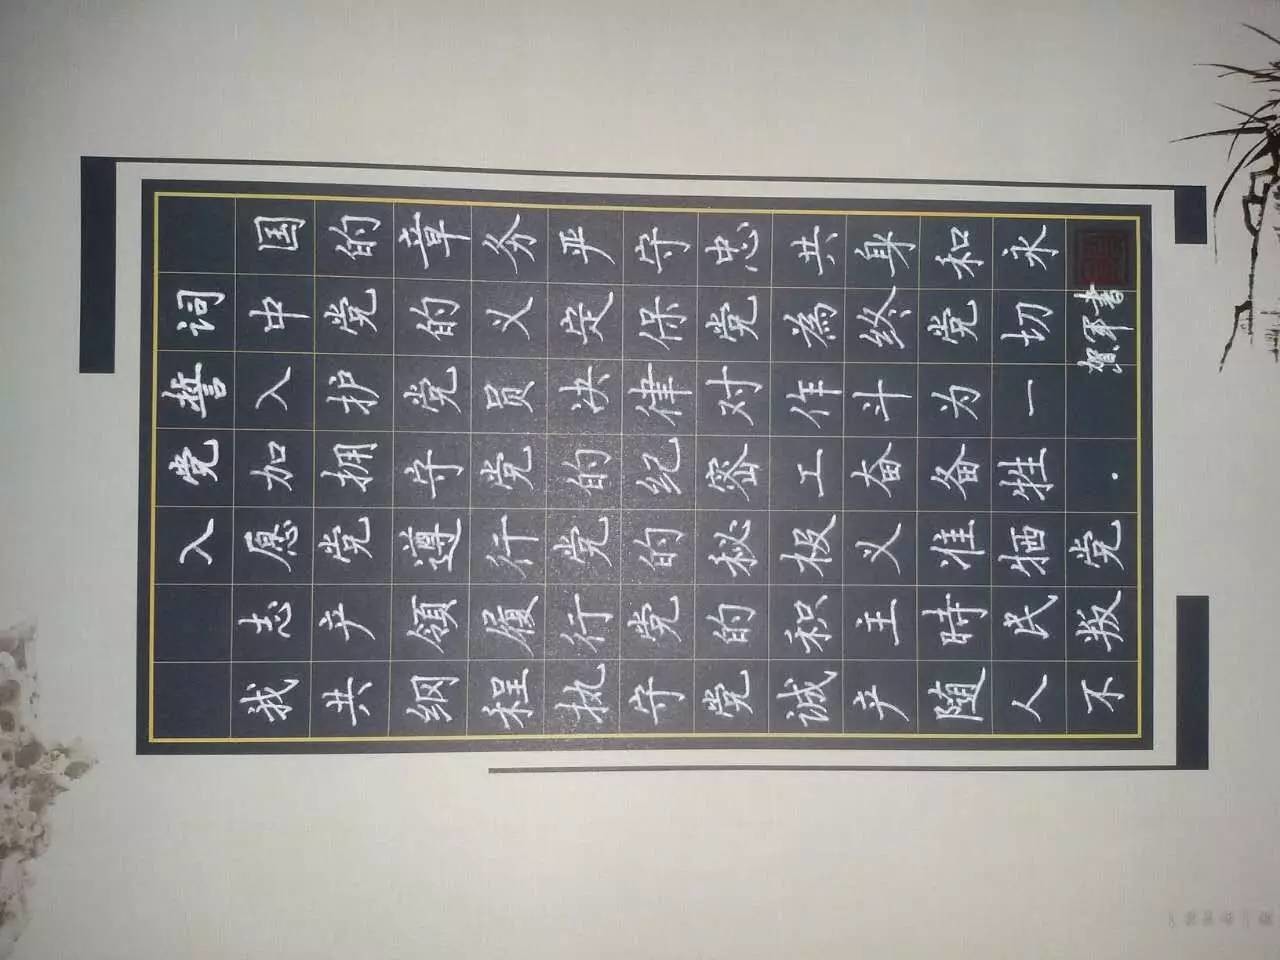 入党誓词
我志愿加入中国
共产党拥护党的
纲領遵守党的章
程履行党员义务
执行党的决定严
守党的纪律保守
党的秘密对党忠
诚积极工作為共
产主义奋斗终身
随時准备为党和
人民牺牲一切永
不叛党. 贺军書